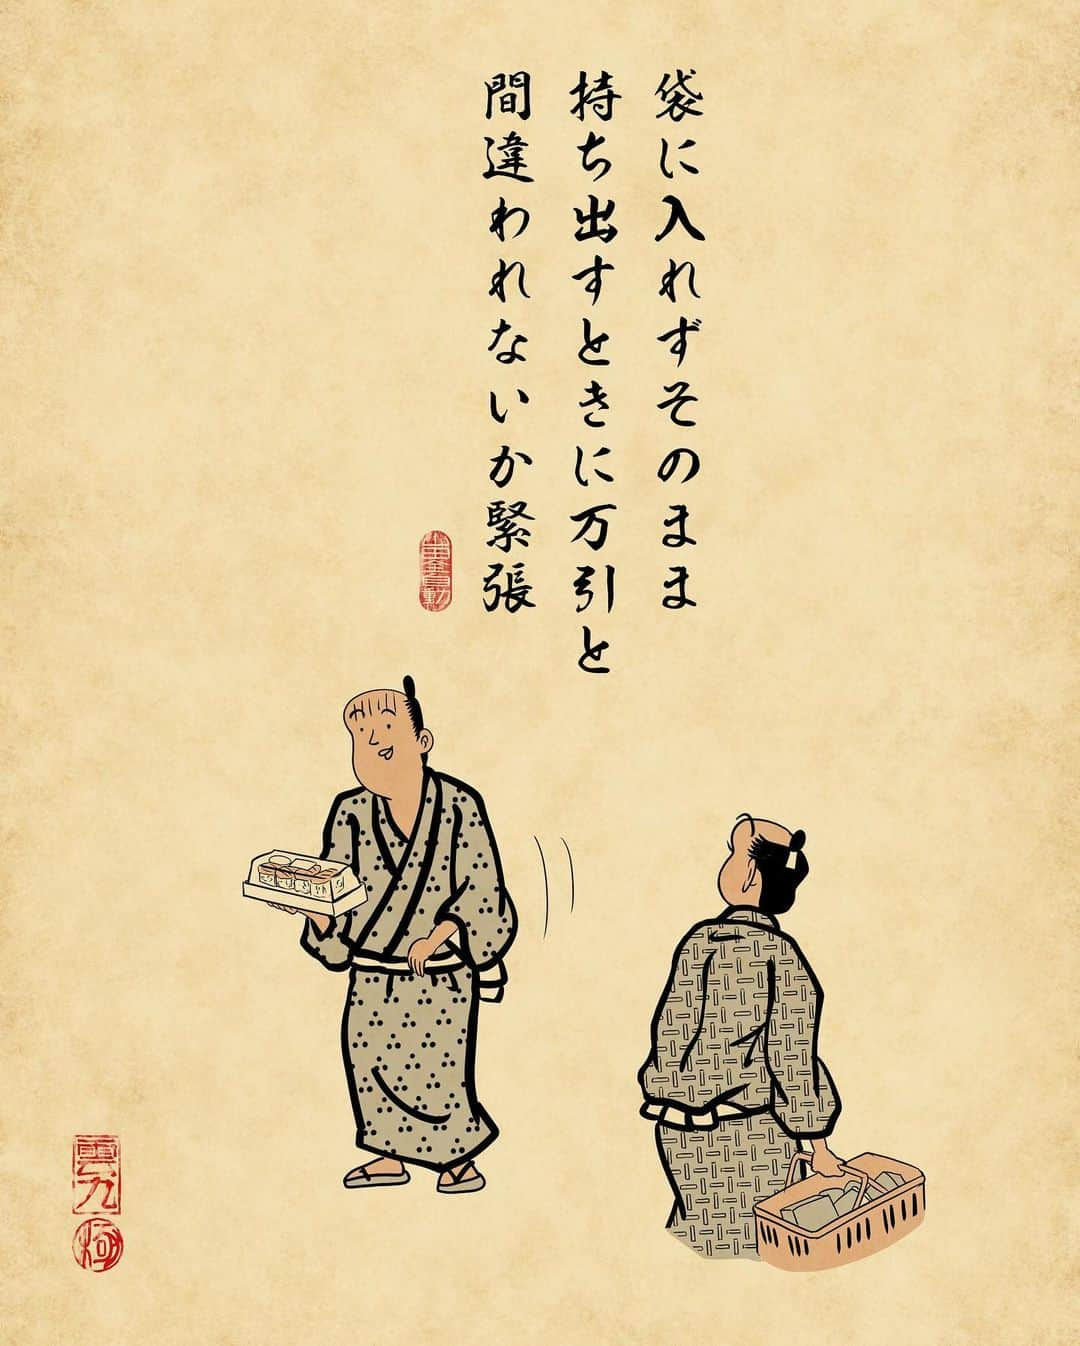 袋に入れずそのまま
持ち出すときに万引と
間違われないか緊張